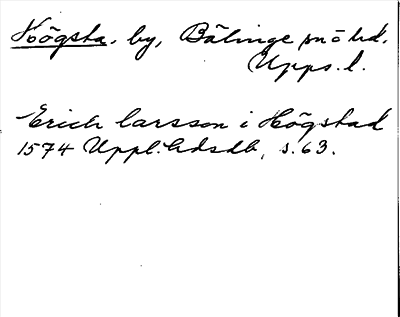 Högsta. by, Bälinge sn o hd.
Upps. l.
Erich larsson i Högstad
1574 Uppl. hdsdb, s. 63.